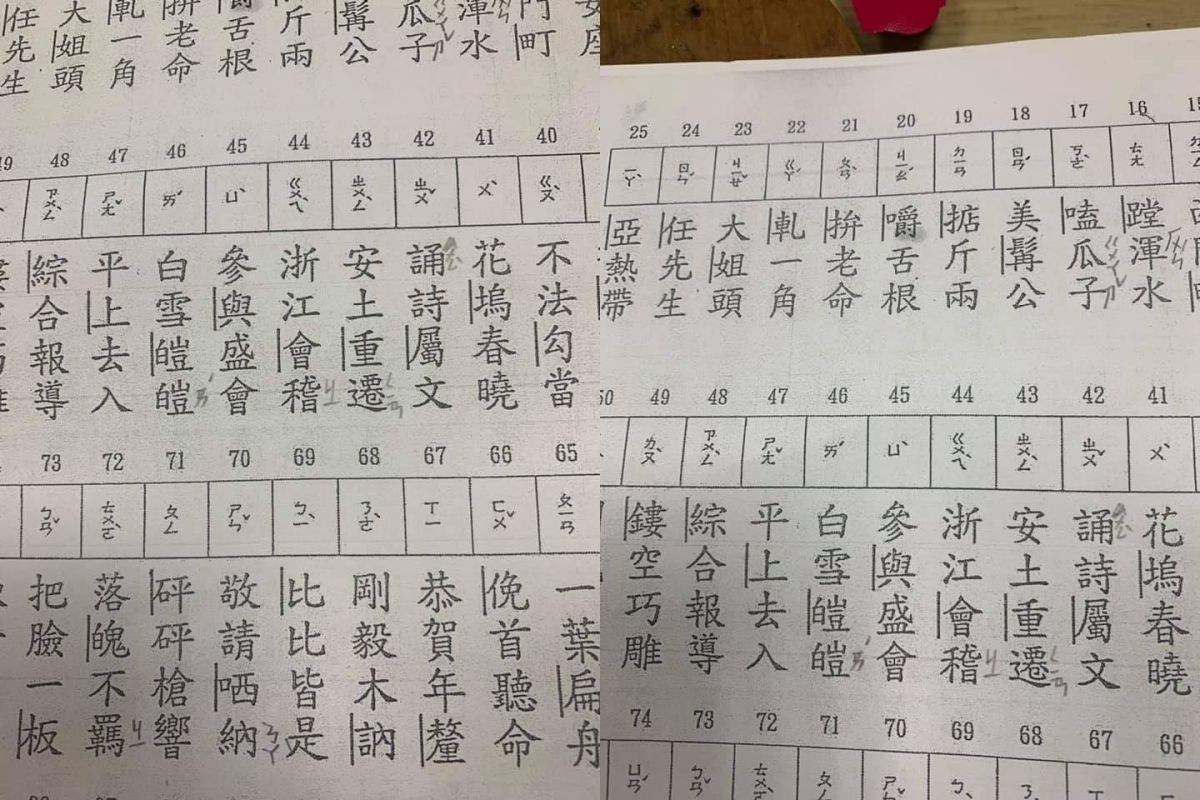 門町
渾水
瓜子
髯公
斤兩
舌根
拚老命
軋一角
大姐頭
任先生
40 ㄍㄡˋ 不法勾當
41 ㄨˋ 花塢春曉
42 ㄓㄨˇ 誦詩屬文
43 ㄓㄨㄥˋ 安土重遷
44 ㄍㄨㄟˋ 浙江會稽
45 ㄩˋ 參與盛會
46 ㄞˊ 白雪皚皚
47 ㄕㄤˇ 平上去入
48 ㄗㄨㄥˋ 綜合報導
65 ㄆㄧㄢ 一葉扁舟
66 ㄈㄨˇ 俛首聽命
67 ㄒㄧ 恭賀年釐
68 ㄋㄜˋ 剛毅木訥
69 ㄅㄧˋ 比比皆是
70 ㄕㄣˇ 敬請哂納
71 ㄆㄥ 砰砰槍響
72 ㄊㄨㄛˋ 落魄不羈
73 ㄅㄢˇ 把臉一板
16 ㄊㄤ 蹚渾水
17 ㄎㄜˋ 嗑瓜子
18 ㄖㄢˊ 美髯公
19 ㄉㄧㄢ 掂斤兩
20 ㄐㄧㄠˊ 嚼舌根
21 ㄆㄢˋ 拚老命
22 ㄍㄚˊ 軋一角
23 ㄐㄧㄝˇ 大姐頭
24 ㄖㄣˊ 任先生
25 ㄧㄚˋ 亞熱帶
41 ㄨˋ 花塢春曉
42 ㄓㄨˇ 誦詩屬文
43 ㄓㄨㄥˋ 安土重遷
44 ㄍㄨㄟˋ 浙江會稽
45 ㄩˋ 參與盛會
46 ㄞˊ 白雪皚皚
47 ㄕㄤˇ 平上去入
48 ㄗㄨㄥˋ 綜合報導
49 ㄌㄡˋ 鏤空巧雕
66
67
68
69
70
71
72
73
74